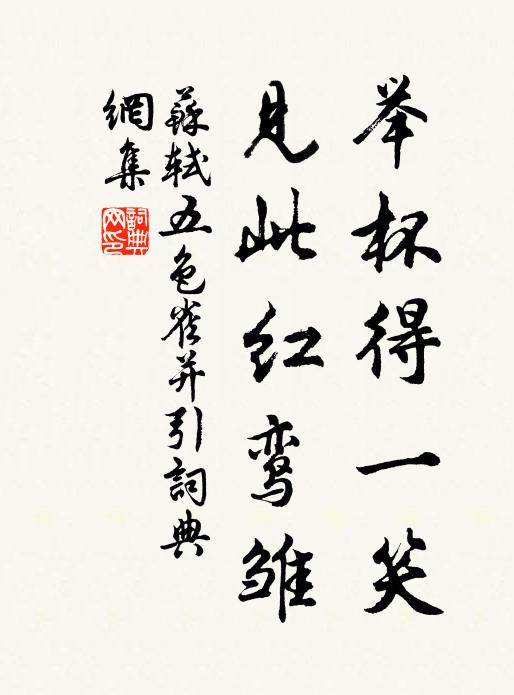 举杯得一笑
见此红鸾雏
蘇軾五色雀并引詞典
網集
詞典
网印